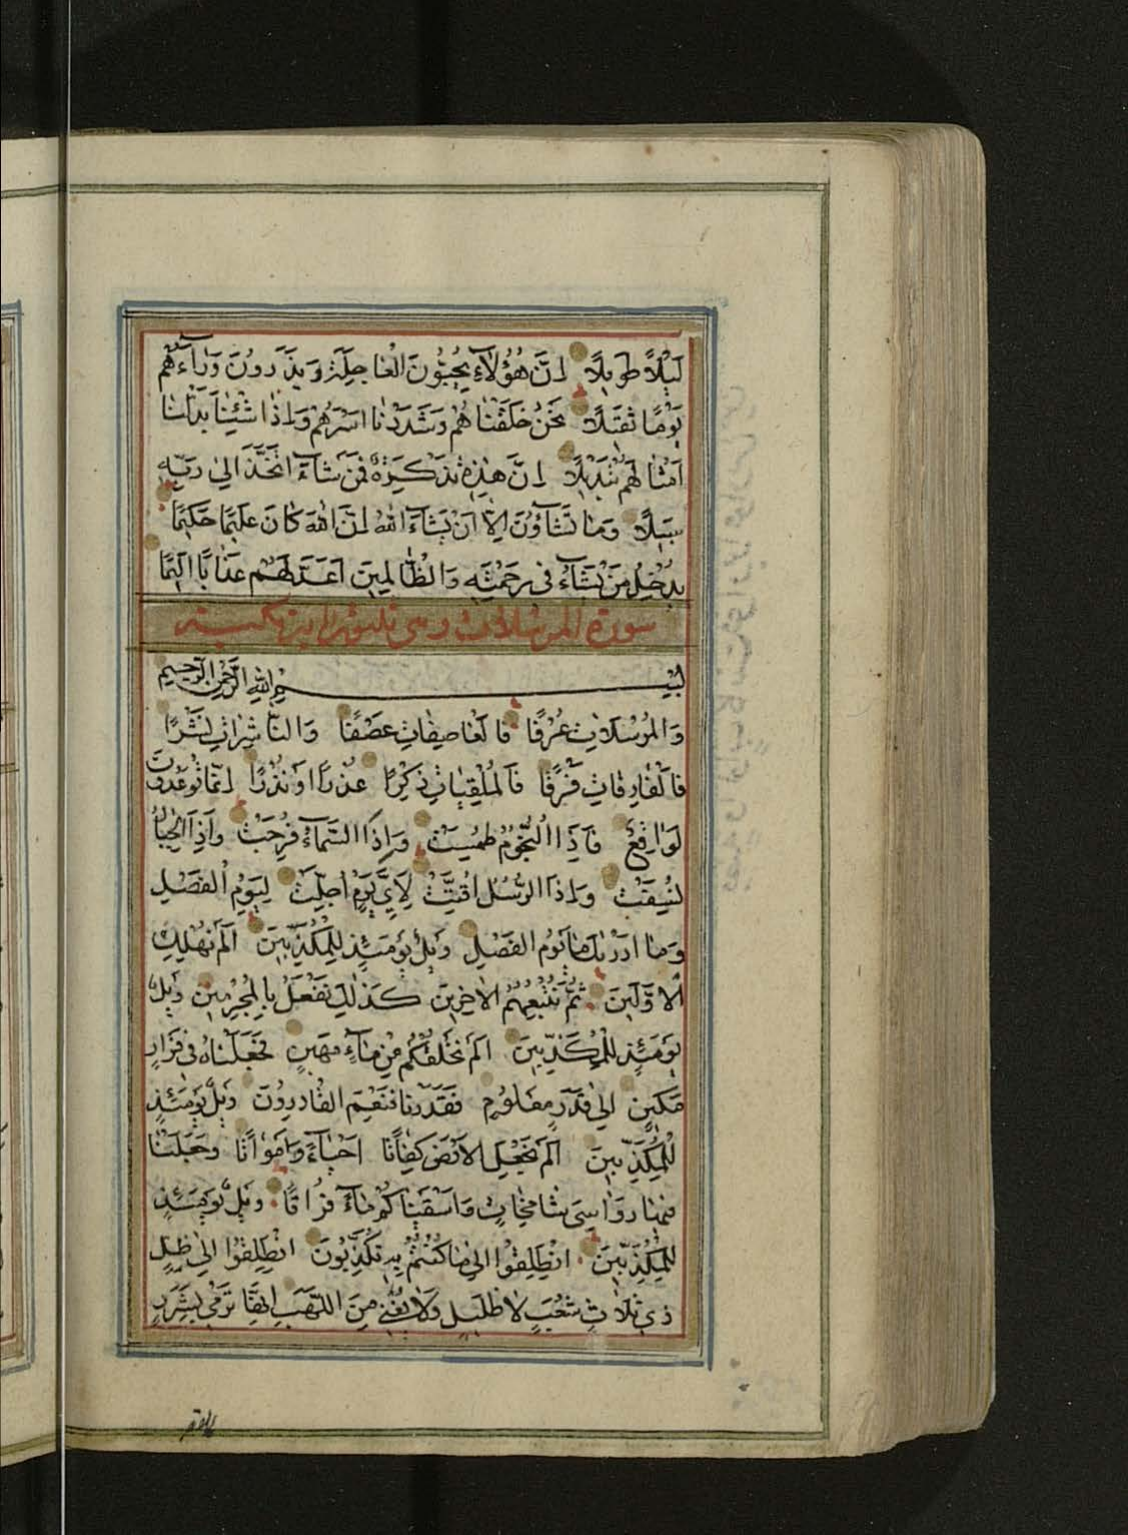 لَيْلًا طَوِيلًا اِنَّ هٰؤُلَاۤءِ يُحِبُّونَ الْعَاجِلَةَ وَيَذَرُونَ وَرَاۤءَهُمْ
يَوْمًا ثَقِيلًا نَحْنُ خَلَقْنَاهُمْ وَشَدَدْنَا اَسْرَهُمْ وَاِذَا شِئْنَا بَدَّلْنَا
اَمْثَالَهُمْ تَبْدِيلًا اِنَّ هٰذِهِ تَذْكِرَةٌ فَمَنْ شَاۤءَ اتَّخَذَ اِلٰى رَبِّهِ
سَبِيلًا وَمَا تَشَاۤؤُنَ اِلَّا اَنْ يَشَاۤءَ اللّٰهُ اِنَّ اللّٰهَ كَانَ عَلِيمًا حَكِيمًا
يُدْخِلُ مَنْ يَشَاۤءُ فِى رَحْمَتِهِ وَالظَّالِمِينَ اَعَدَّ لَهُمْ عَذَابًا اَلِيمًا
سورة المرسلات
بِسْمِ اللّٰهِ الرَّحْمٰنِ الرَّحِيمِ
وَالْمُرْسَلَاتِ عُرْفًا فَالْعَاصِفَاتِ عَصْفًا وَالنَّاشِرَاتِ نَشْرًا
فَالْفَارِقَاتِ فَرْقًا فَالْمُلْقِيَاتِ ذِكْرًا عُذْرًا اَوْ نُذْرًا اِنَّمَا تُوعَدُونَ
لَوَاقِعٌ فَاِذَا النُّجُومُ طُمِسَتْ وَاِذَا السَّمَاۤءُ فُرِجَتْ وَاِذَا الْجِبَالُ
نُسِفَتْ وَاِذَا الرُّسُلُ اُقِّتَتْ لِاَيِّ يَوْمٍ اُجِّلَتْ لِيَوْمِ الْفَصْلِ
وَمَا اَدْرٰيكَ مَا يَوْمُ الْفَصْلِ وَيْلٌ يَوْمَئِذٍ لِلْمُكَذِّبِينَ اَلَمْ نُهْلِكِ
الْاَوَّلِينَ ثُمَّ نُتْبِعُهُمُ الْاٰخِرِينَ كَذٰلِكَ نَفْعَلُ بِالْمُجْرِمِينَ وَيْلٌ
يَوْمَئِذٍ لِلْمُكَذِّبِينَ اَلَمْ نَخْلُقْكُمْ مِنْ مَاۤءٍ مَهِينٍ فَجَعَلْنَاهُ فِى قَرَارٍ
مَكِينٍ اِلٰى قَدَرٍ مَعْلُومٍ فَقَدَرْنَا فَنِعْمَ الْقَادِرُونَ وَيْلٌ يَوْمَئِذٍ
لِلْمُكَذِّبِينَ اَلَمْ نَجْعَلِ الْاَرْضَ كِفَاتًا اَحْيَاۤءً وَاَمْوَاتًا وَجَعَلْنَا
فِيهَا رَوَاسِيَ شَامِخَاتٍ وَاَسْقَيْنَاكُمْ مَاۤءً فُرَاتًا وَيْلٌ يَوْمَئِذٍ
لِلْمُكَذِّبِينَ اِنْطَلِقُوا اِلٰى مَا كُنْتُمْ بِهِ تُكَذِّبُونَ اِنْطَلِقُوا اِلٰى ظِلٍّ
ذِي ثَلَاثِ شُعَبٍ لَا ظَلِيلٍ وَلَا يُغْنِي مِنَ اللَّهَبِ اِنَّهَا تَرْمِي بِشَرَرٍ